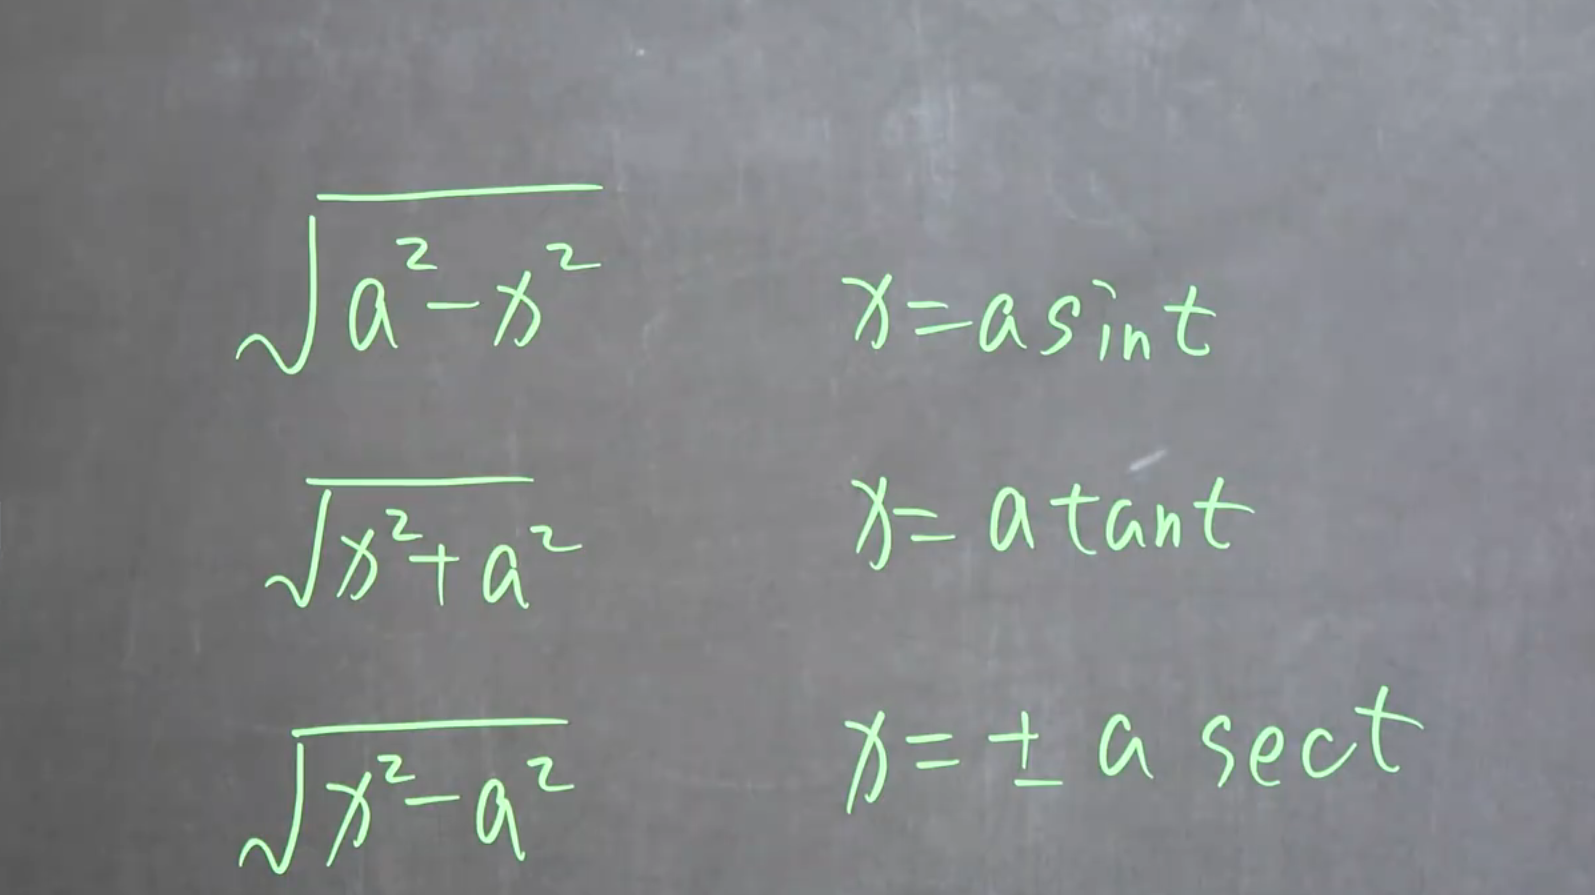 √(a² - x²) x = a sin t
√(x² + a²) x = a tan t
√(x² - a²) x = ± a sec t